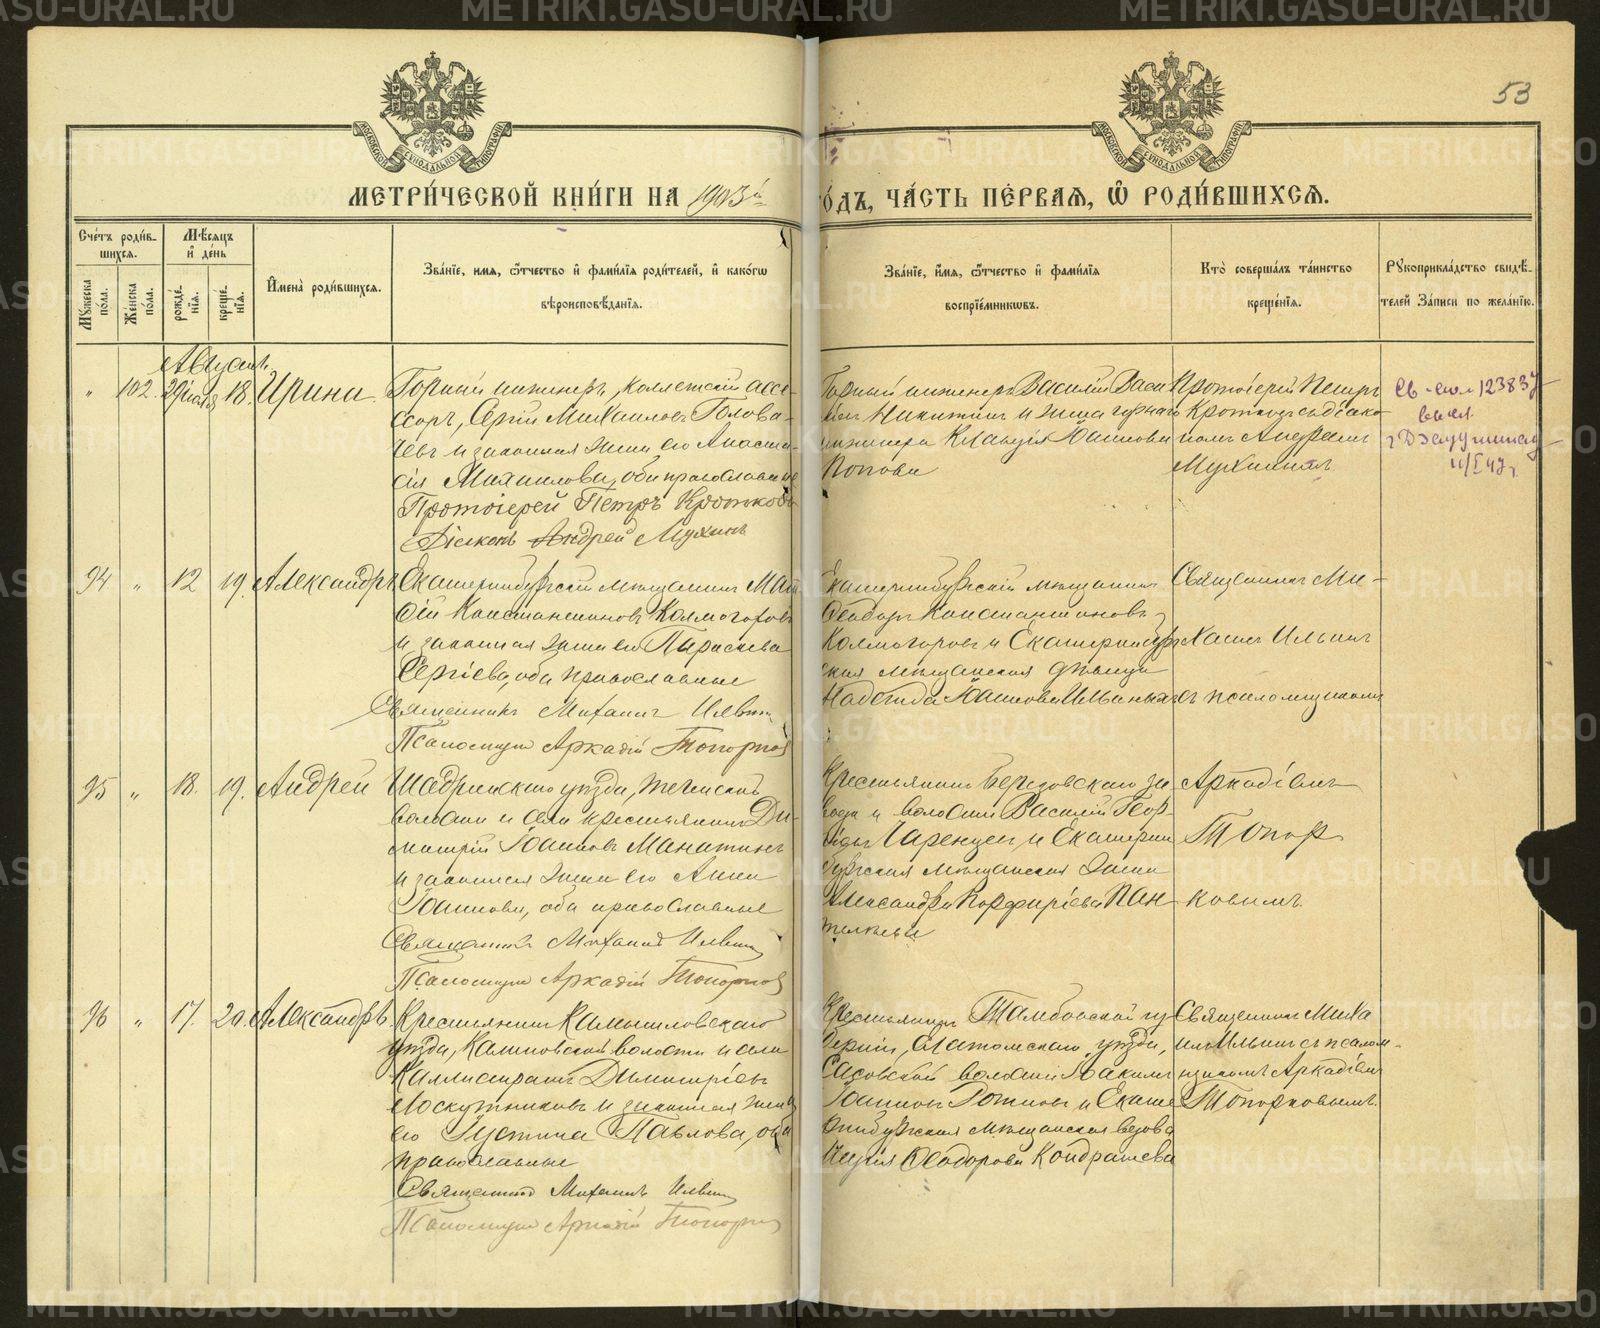 53
МЕТРИ́ЧЕСКОЙ КНИ́ГИ НА 1903й
ГО́ДЪ, ЧА́СТЬ ПЕ́РВАЯ, Ѡ РОДИ́ВШИХСЯ.
Сче́тъ роди́в-
шихся.
Мѣ́сяцъ
и де́нь
Мꙋжеска по́ла.
Же́нска по́ла.
рожде́нїя.
креще́нїя.
И҆мена̀ роди́вшихся.
Зва́нїе, имя, ѻ҆́тчество и҆ фами́лїя роди́телей, и҆ како́гѡ
вѣроисповѣ́данїя.
Зва́нїе, и҆́мя, ѻ҆́тчество и҆ фами́лїя
воспрїе́мникѡвъ.
Кто̀ соверша́лъ та́инство
креще́нїя.
Рꙋкоприкла́дство свидѣ́-
телей За́писи по жела́нїю.
Августъ
" 102. 29 июля 18. Ирина.
Горный инженеръ, коллежскій ассе-
соръ, Сергій Михаиловъ Голова-
чёвъ и законная жена его Анаста-
сія Михаилова, оба православные
Протоіерей Петръ Кротковъ
Діаконъ Андрей Мухинъ
Горный инженеръ Василій Васи
евъ Никитинъ и жена горнаго
инженера Клавдія Іоаннова
Попова
Протоіерей Петръ
Кротковъ съ діако-
номъ Андреемъ
Мухинымъ
Св-во 123837
выд.
11/I 42 г.
94 " 12 19. Александръ
Екатеринбургскій мѣщанинъ Мат
ѳій Константиновъ Колмогоровъ
и законная жена его Параскева
Сергіева, оба православные
Священникъ Михаилъ Ильинъ
Псаломщикъ Аркадій Топорков
Екатеринбургскій мѣщанинъ
Ѳеодоръ Константиновъ
Колмогоровъ и Екатеринбург
ская мѣщанская дѣвица
Надежда Іоаннова Ильиныхъ
Священникъ Ми-
хаилъ Ильинъ
съ псаломщикомъ
95 " 18. 19. Андрей
Шадринскаго уѣзда, Теченской
волости и села крестьянинъ Ди-
митрій Іоанновъ Манатинъ
и законная жена его Анна
Іоаннова, оба православные
Священникъ Михаилъ Ильинъ
Псаломщикъ Аркадій Топорков
Крестьянинъ Березовскаго за
вода и волости Василій Геор-
и Екатерин
бургская мѣщанская жена
Александра Порфиріева Пан-
телеева
Аркадіемъ
Топор
ковымъ
96 " 17. 20. Александръ.
Крестьянинъ Камышловскаго
уѣзда, Калиновской волости и села
Каллистратъ Димитріевъ
Лоскутниковъ и законная жена
его Іустина Павлова, оба
православные
Священникъ Михаилъ Ильинъ
Псаломщикъ Аркадій Топорков
Крестьянинъ Тамбовской гу
берніи, Елатомскаго уѣзда,
Сасовской волости Іоакимъ
Іоанновъ и Екате
ринбургская мѣщанская вдова
Ѳеодорова Кондрашева
Священникъ Миха
илъ Ильинъ съ псалом-
щикомъ Аркадіемъ
Топорковымъ.
METRIKI.GASO-URAL.RU